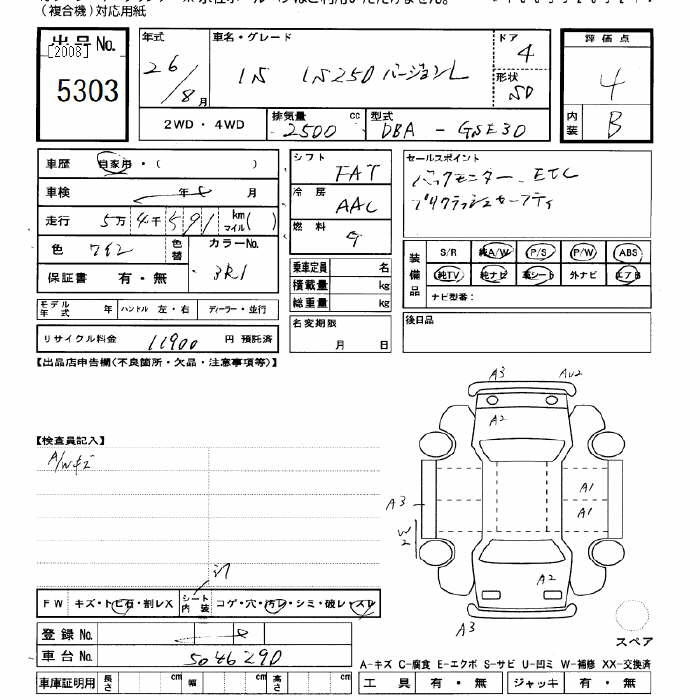 (複合機)対応用紙
出品No.
[2008]
5303
年式
26/8月
車名・グレード
IS IS250 バージョンL
ドア
4
形状
SD
評価点
4
内装
B
2WD・4WD
排気量
2500 cc
型式
DBA - GSE30
車歴 自家用・( )
車検 年 月
走行 5万4千591 km マイル( )
色 ワイン 色替
カラーNo.
3R1
保証書 有・無
モデル年式 年 ハンドル 左・右 ディーラー・並行
リサイクル料金 11900 円 預託済
シフト FAT
冷房 AAC
燃料 G
乗車定員 名
積載量 kg
総重量 kg
名変期限
月 日
セールスポイント
バックモニター ETC
プリクラッシュセーフティ
装備品
S/R 純A/W P/S P/W ABS
純TV 純ナビ 革シート 外ナビ エアB
ナビ型番:
後日品
【出品店申告欄(不良箇所・欠品・注意事項等)】
【検査員記入】
A/Wキズ
A3 AU2
A2
A1
A3 A1
W2
A2
A3
スペア
FW キズ・トビ石・割レX シート内装 コゲ・穴・汚レ・シミ・破レ・スレ
登録No.
車台No. 5046290
車庫証明用 長さ cm 幅 cm 高さ cm
A-キズ C-腐食 E-エクボ S-サビ U-凹ミ W-補修 XX-交換済
工具 有・無 ジャッキ 有・無